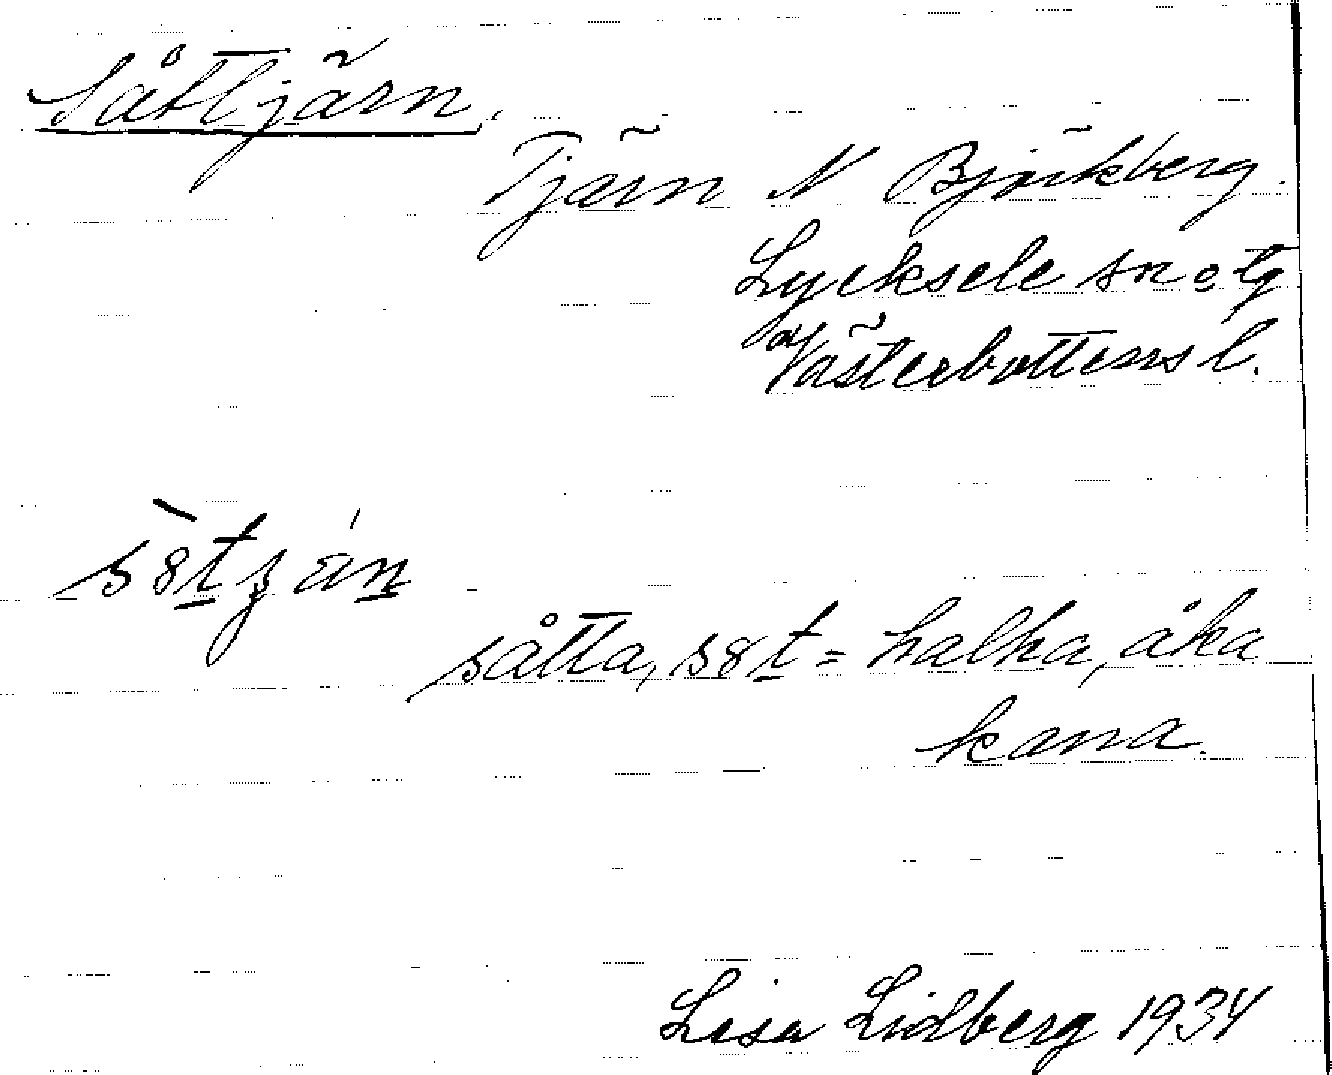 Såttjärn,
Tjärn N Björkberg.
Lycksele sn o tg
Västerbottens l.
såtta, = halka, åka
kana.
Lisa Lidberg 1934